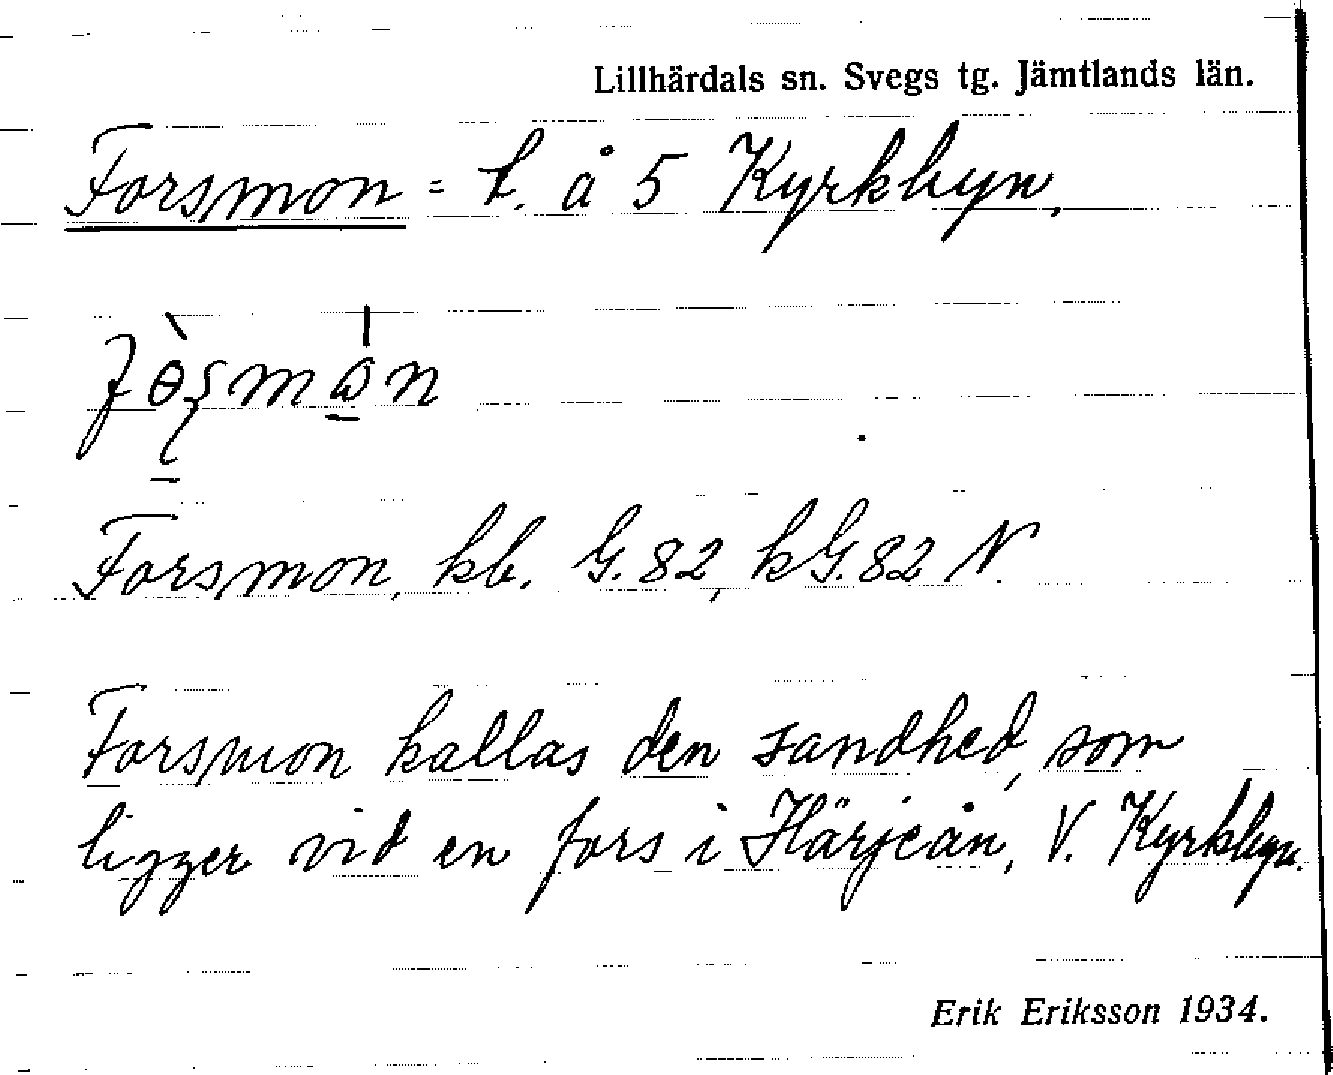 Lillhärdals sn. Svegs tg. Jämtlands län.
Forsmon = t. å 5 Kyrkbyn,
Forsmon, kb. G. 82, kG. 82 N.
Forsmon kallas den sandhed, som
ligger vid en fors i Härjeån, V. Kyrkbyn.
Erik Eriksson 1934.